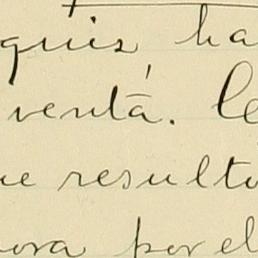 quis, ha
ventá. Ce
ue resulto
ora por el